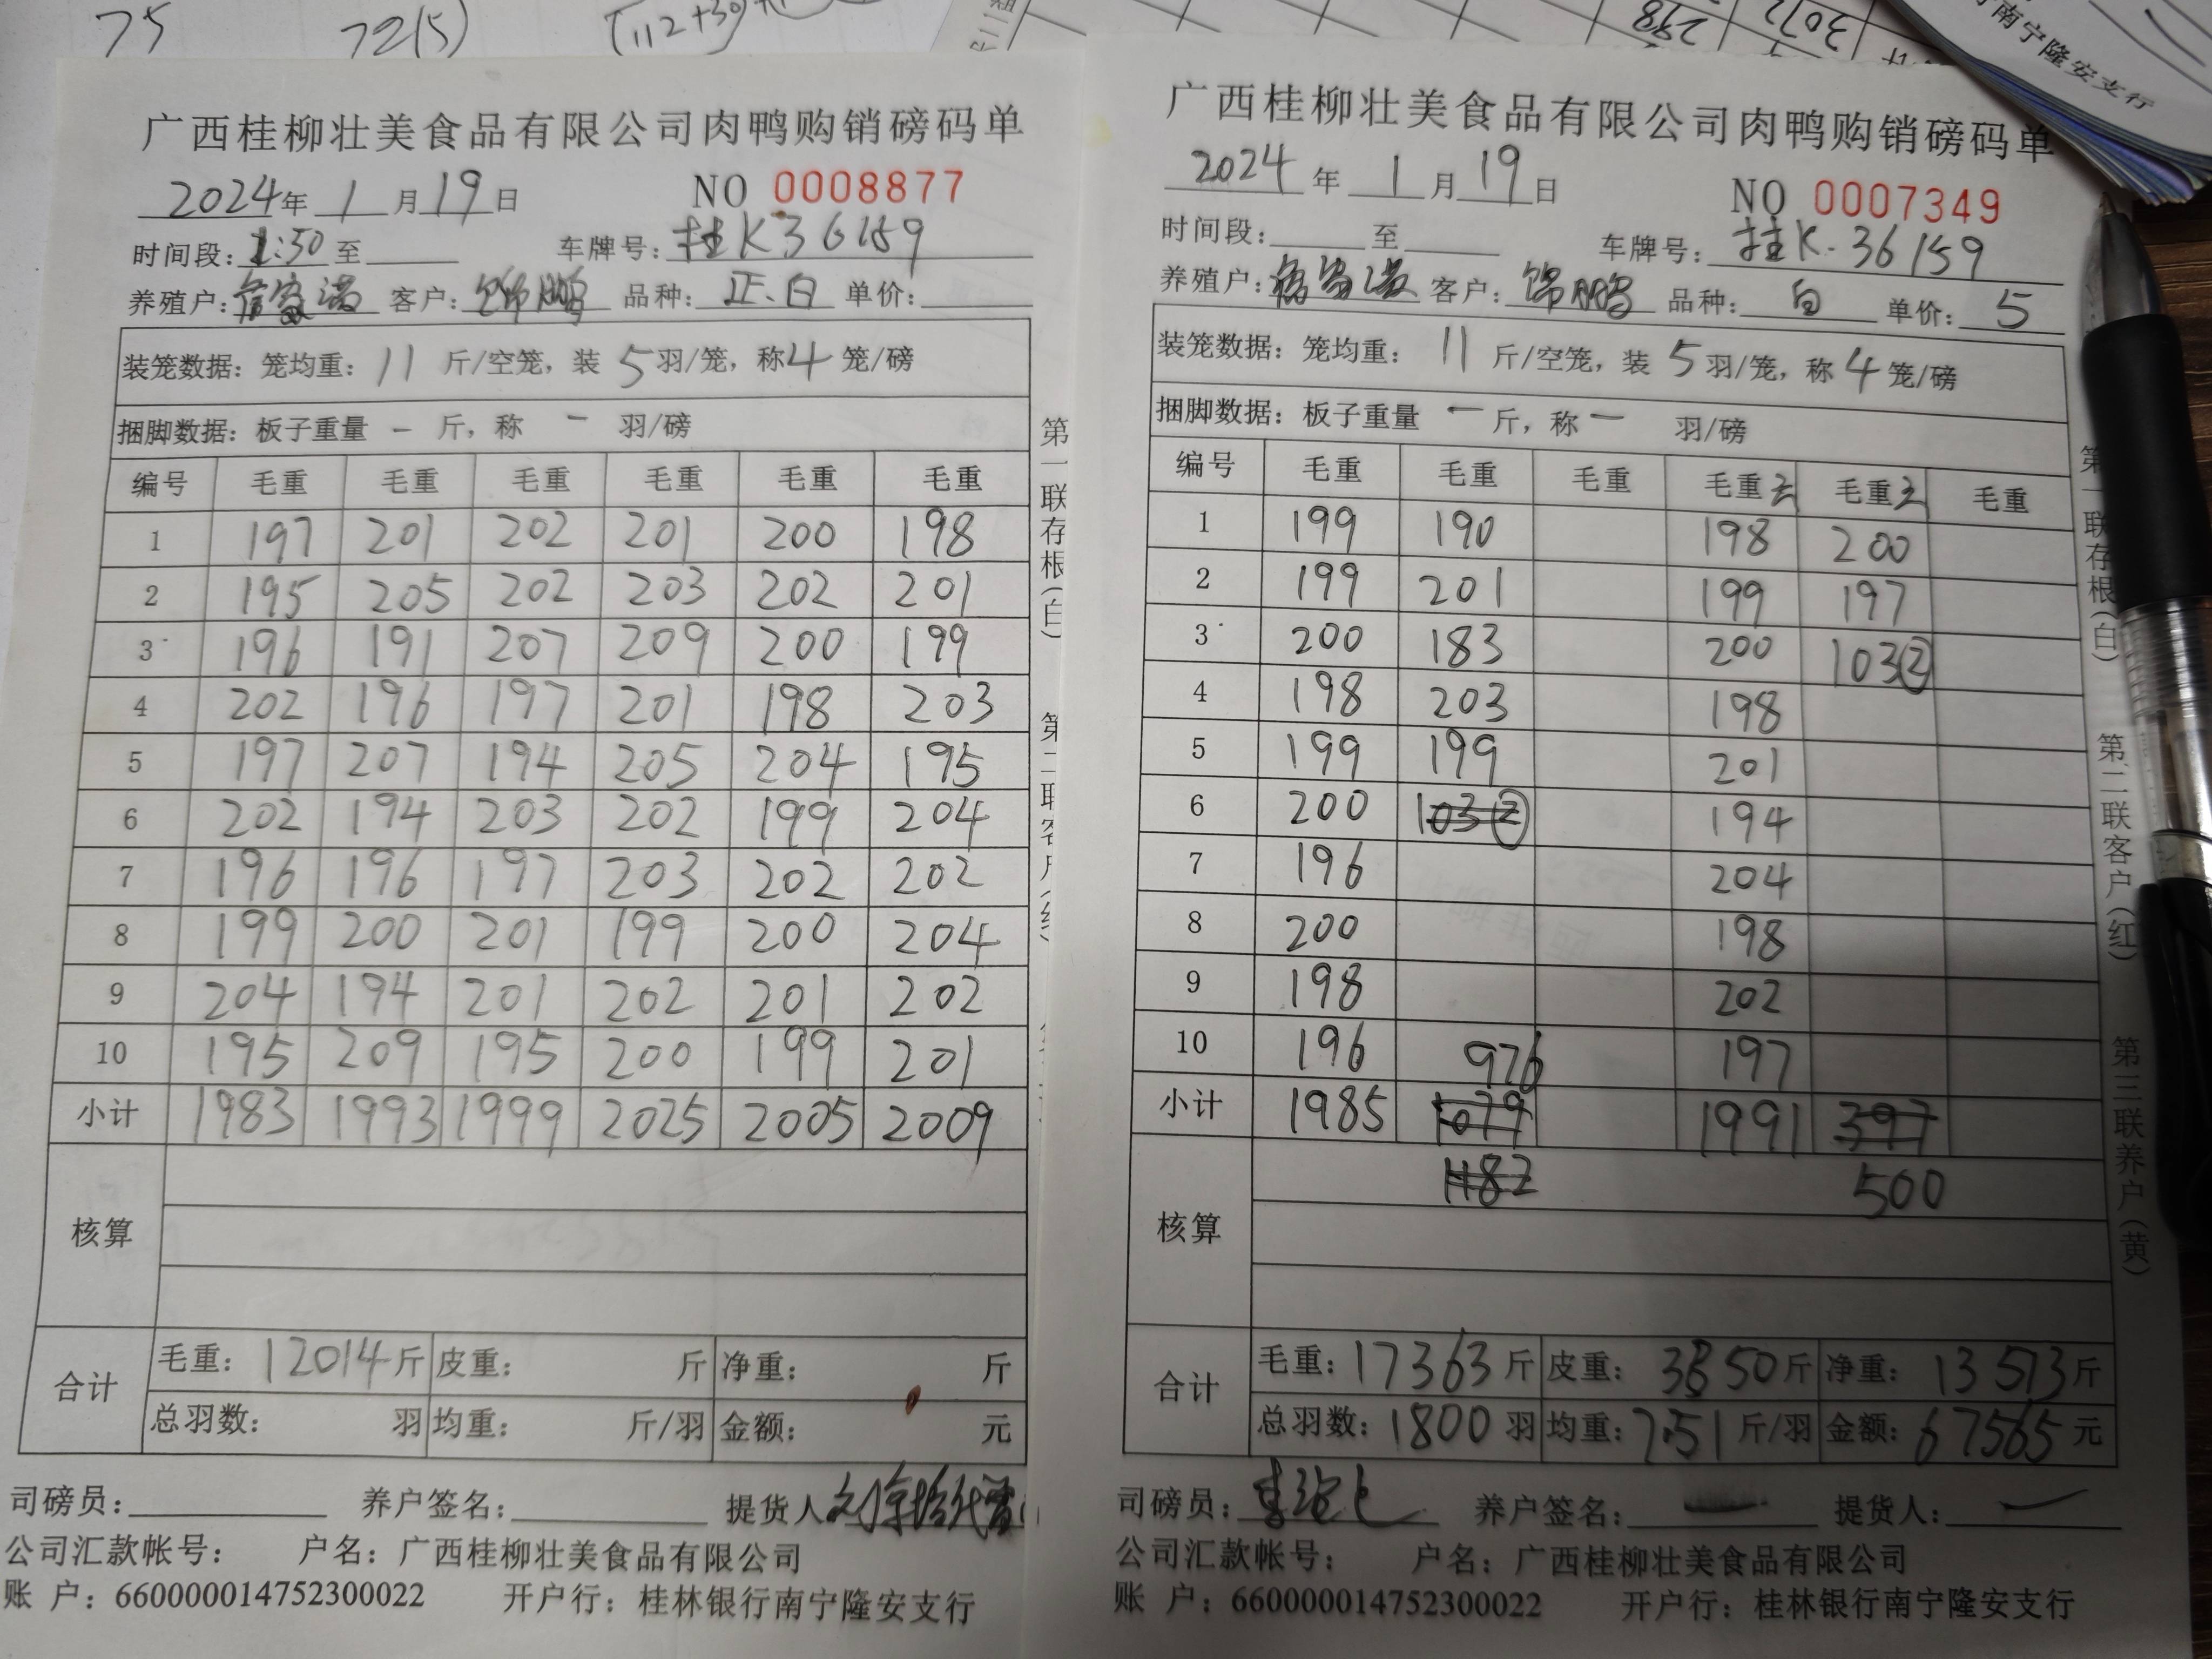 75 72(5) (112+30
3072
298
南宁隆安支行
广西桂柳壮美食品有限公司肉鸭购销磅码单
2024年 1 月 19 日 NO 0008877
时间段: 1:50 至 车牌号: 桂K36159
养殖户: 客户: 锦鹏 品种: 正.白 单价:
装笼数据: 笼均重: 11 斤/空笼, 装 5 羽/笼, 称 4 笼/磅
捆脚数据: 板子重量 一 斤, 称 一 羽/磅
编号 毛重 毛重 毛重 毛重 毛重 毛重
1 197 201 202 201 200 198
2 195 205 202 203 202 201
3 196 191 207 209 200 199
4 202 196 197 201 198 203
5 197 207 194 205 204 195
6 202 194 203 202 199 204
7 196 196 197 203 202 202
8 199 200 201 199 200 204
9 204 194 201 202 201 202
10 195 209 195 200 199 201
小计 1983 1993 1999 2025 2005 2009
核算
合计 毛重: 12014 斤 皮重: 斤 净重: 斤
总羽数: 羽 均重: 斤/羽 金额: 元
司磅员: 养户签名: 提货人
公司汇款帐号: 户名: 广西桂柳壮美食品有限公司
账 户: 660000014752300022 开户行: 桂林银行南宁隆安支行
第一联存根(白) 第二联客户(红)
广西桂柳壮美食品有限公司肉鸭购销磅码单
2024 年 1 月 19 日 NO 0007349
时间段: 至 车牌号: 桂K.36159
养殖户: 客户: 锦鹏 品种: 白 单价: 5
装笼数据: 笼均重: 11 斤/空笼, 装 5 羽/笼, 称 4 笼/磅
捆脚数据: 板子重量 一 斤, 称 一 羽/磅
编号 毛重 毛重 毛重 毛重 毛重 毛重
1 199 190 198 200
2 199 201 199 197
3 200 183 200 103②
4 198 203 198
5 199 199 201
6 200 103② 194
7 196 204
8 200 198
9 198 202
10 196 976 197
小计 1985 1079 1991 397
1182 500
核算
合计 毛重: 17363 斤 皮重: 3850 斤 净重: 13513 斤
总羽数: 1800 羽 均重: 7.51 斤/羽 金额: 67565 元
司磅员: 养户签名: 提货人:
公司汇款帐号: 户名: 广西桂柳壮美食品有限公司
账 户: 660000014752300022 开户行: 桂林银行南宁隆安支行
第一联存根(白) 第二联客户(红) 第三联养户(黄)